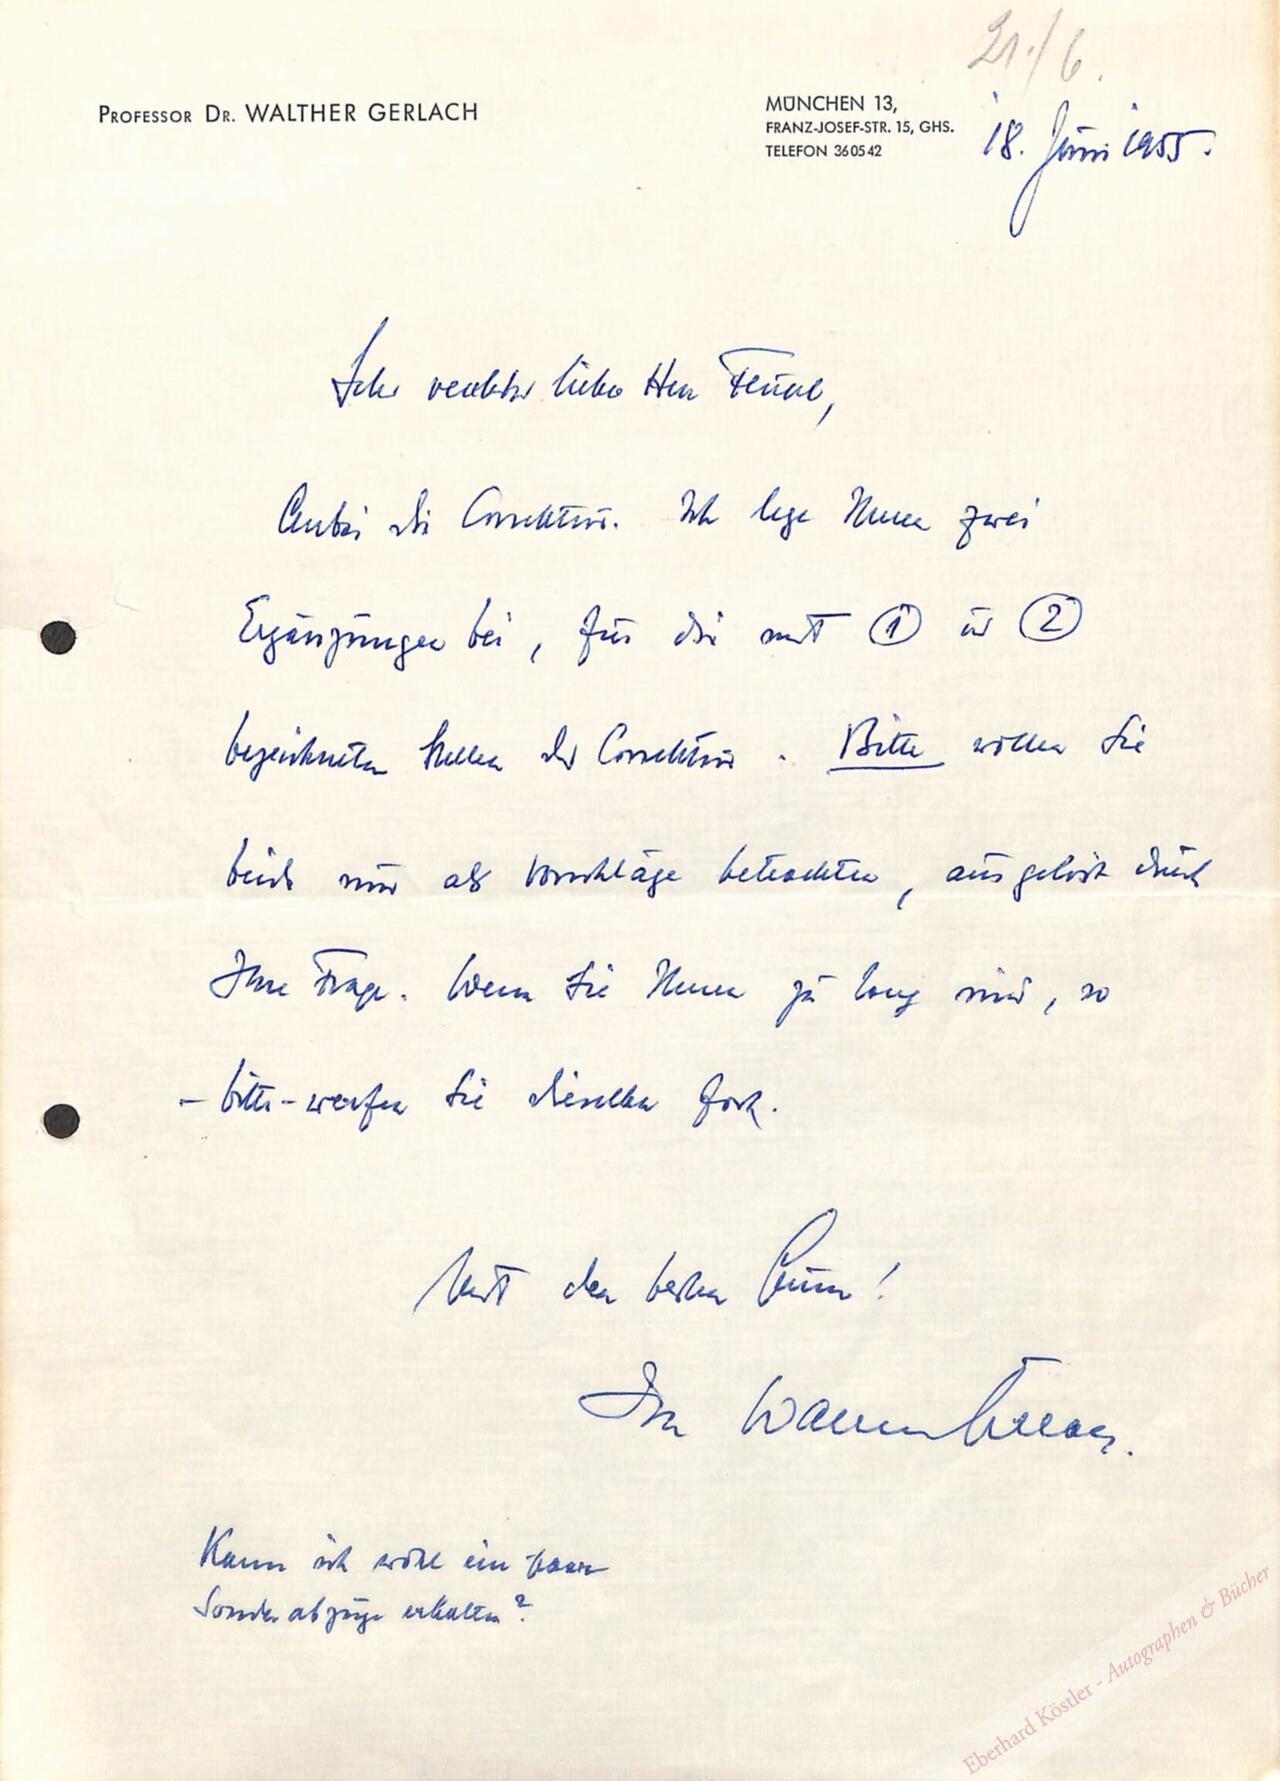 21./6.
PROFESSOR DR. WALTHER GERLACH
MÜNCHEN 13,
FRANZ-JOSEF-STR. 15, GHS.
TELEFON 360542
18. Juni 1955.
Sehr verehrter lieber Herr
Anbei die Correktur. Ich lege Ihnen zwei
Ergänzungen bei, für die mit ① u ②
bezeichneten Stellen der Correktur. Bitte wollen Sie
beide nur als Vorschläge betrachten, ausgelöst durch
Ihre Frage. Wenn Sie Ihnen zu lang sind, so
– bitte – werfen Sie dieselben fort.
Mit den besten Grüssen!
Ihr Walther Gerlach.
Kann ich wohl ein paar
Sonderabzüge erhalten?
Eberhard Köstler - Autographen & Bücher